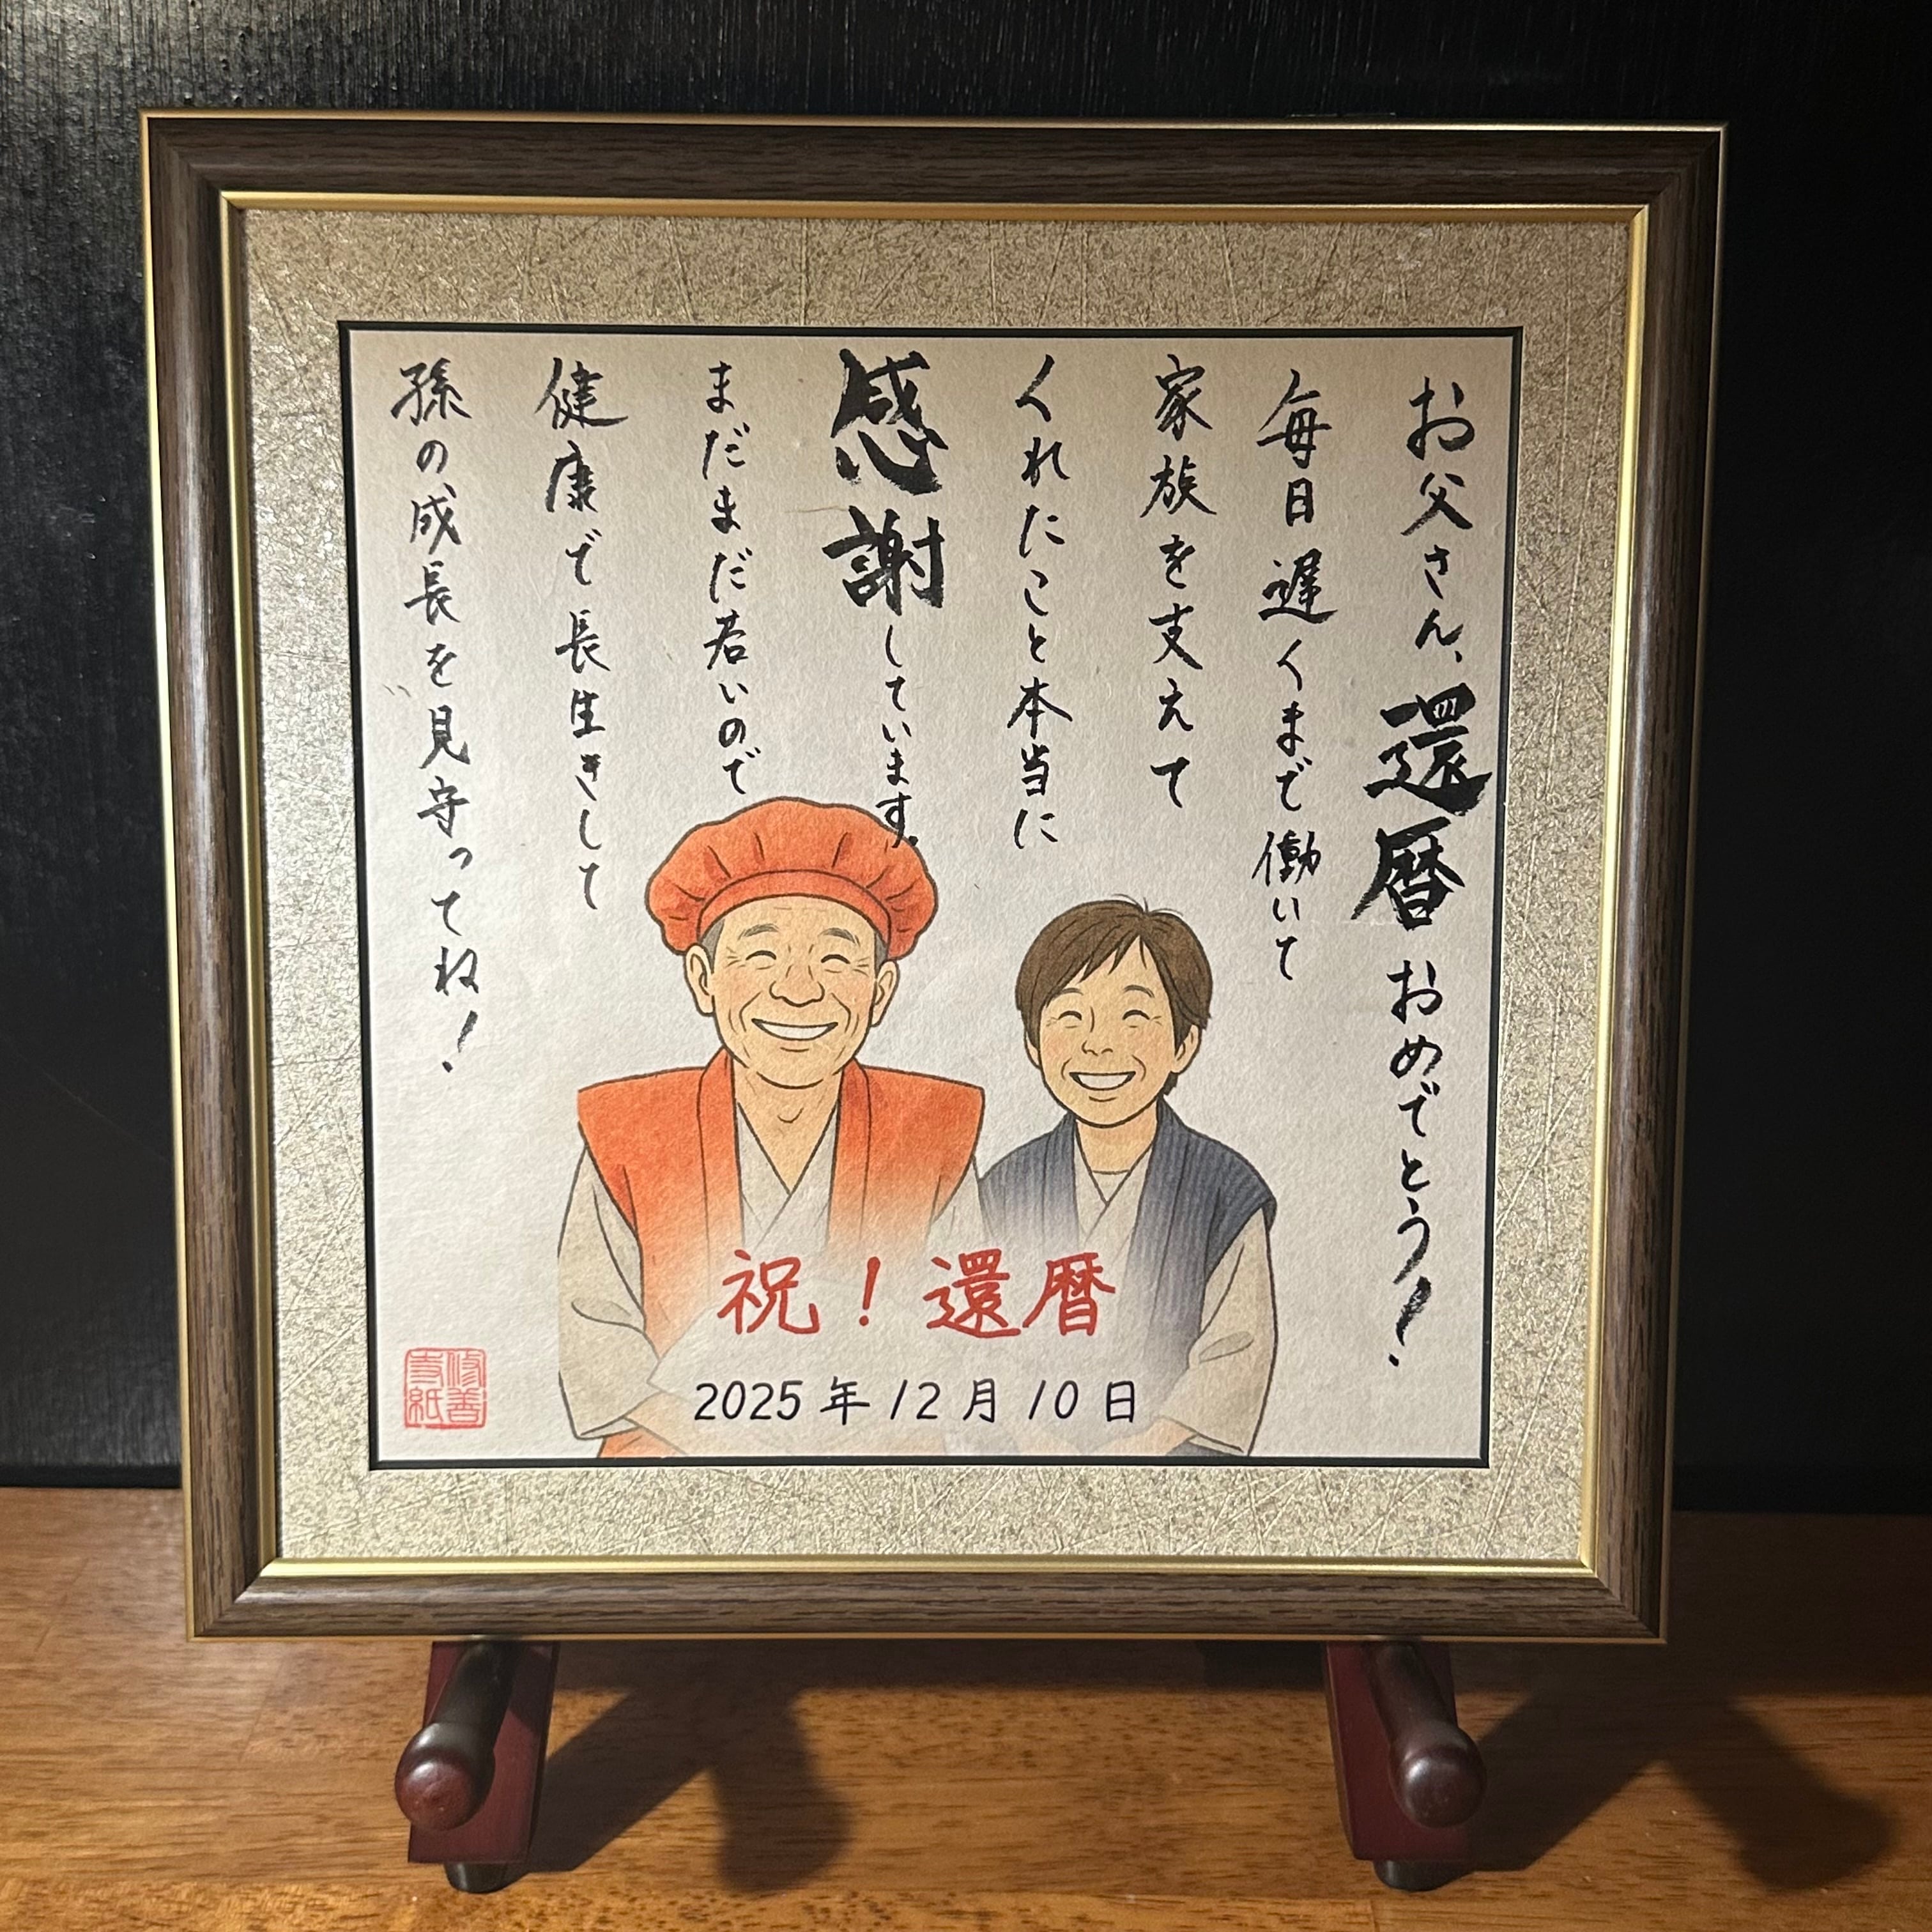 お父さん、還暦おめでとう!
毎日遅くまで働いて
家族を支えて
くれたこと本当に
感謝しています。
まだまだ若いので
健康で長生きして
孫の成長を見守ってね!
祝!還暦
2025年12月10日
修善
寺紙